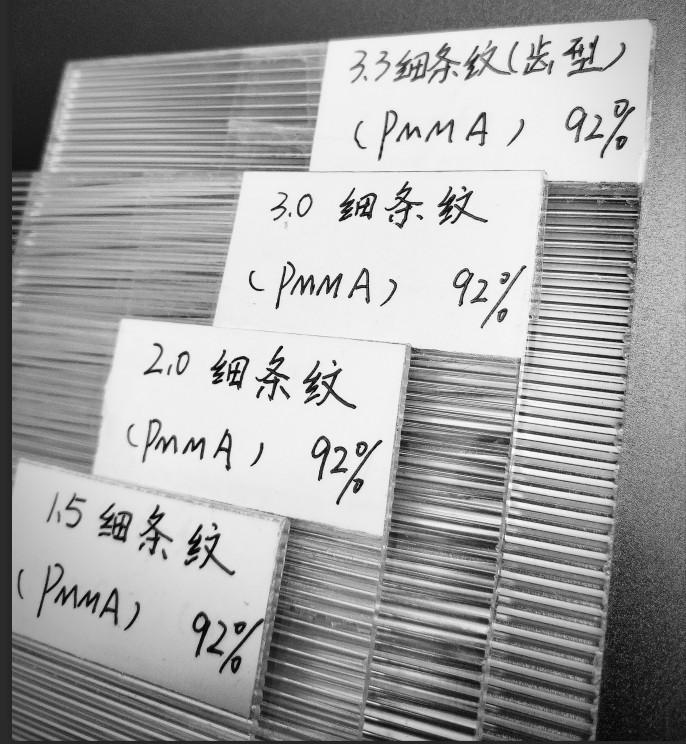 3.3细条纹(齿型)
(PMMA) 92%
3.0 细条纹
(PMMA) 92%
2.0 细条纹
(PMMA) 92%
1.5 细条纹
(PMMA) 92%